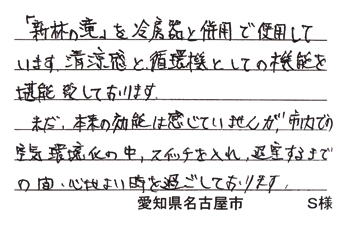 「新林の滝」を冷房器と併用で使用して
います。清涼感と、循環機としての機能を
堪能致しております。
まだ、本来の効能は感じていませんが、市内での
空気環境化の中、スイッチを入れ、退室するまで
の間、心地よい時を過ごしております。
愛知県名古屋市 S様